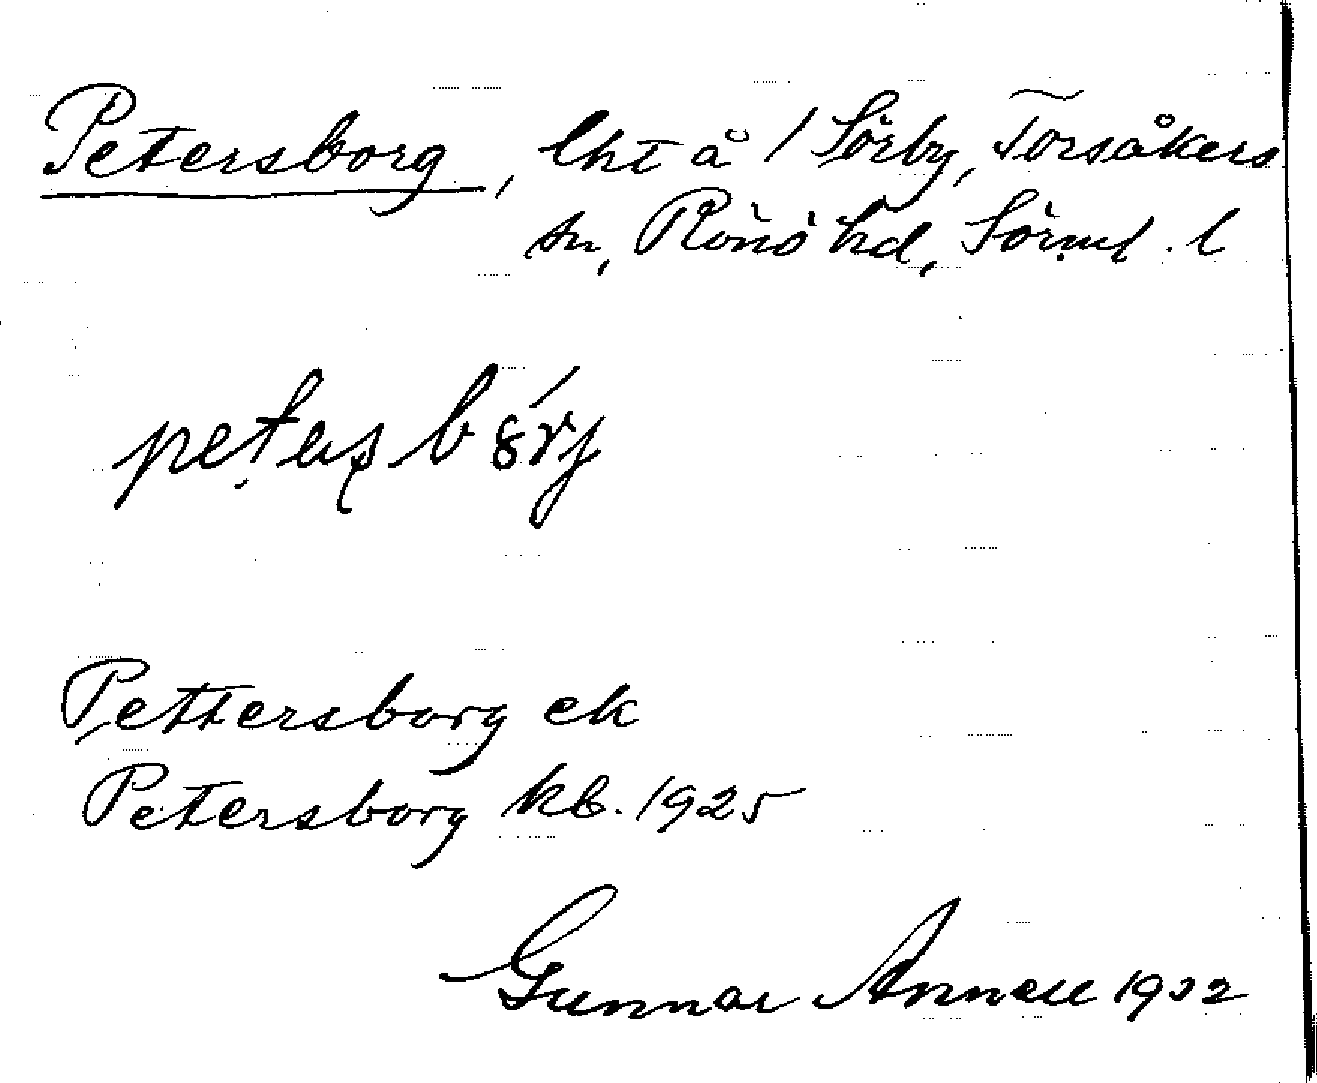 Petersborg, lht å / Sörby, Torsåkers
sn, Rönö hd, Sörml. l
Pettersborg ek
Petersborg kb. 1925
Gunnar Annell 1932